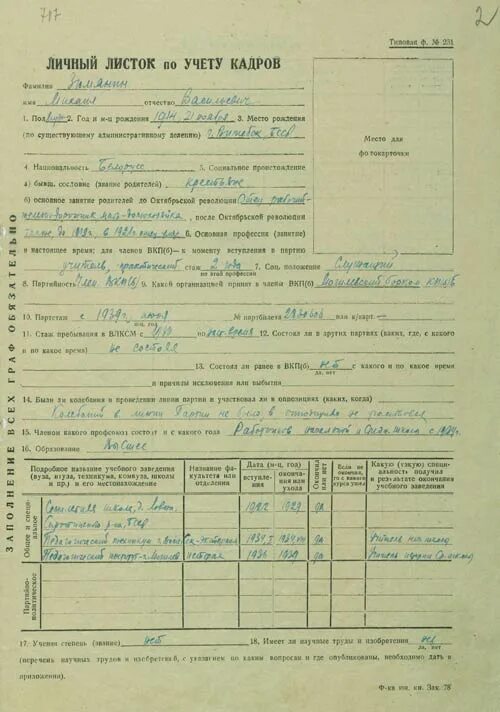 707
2
Типовая ф. № 231
ЛИЧНЫЙ ЛИСТОК по УЧЕТУ КАДРОВ
Фамилия Зимянин
имя Михаил отчество Васильевич
1. Пол муж. 2. Год и м-ц рождения 1914, 21 ноября 3. Место рождения
(по существующему административному делению) г. Витебск, БССР
Место для
фотокарточки
4. Национальность Белорус 5. Социальное происхождение
а) бывш. сословие (звание родителей) крестьяне
б) основное занятие родителей до Октябрьской революции Отец рабочий-
железнодорожник мать-домохозяйка, после Октябрьской революции
6. Основная профессия (занятие)
в настоящее время; для членов ВКП(б)—к моменту вступления в партию
учитель, практический стаж 2 года 7. Соц. положение Служащий
по этой профессии
8. Партийность Член ВКП(б) 9. Какой организацией принят в члены ВКП(б) Могилевский горком КП(б)Б
10. Партстаж с 1939 г. июня № партбилета или к/карт.—
м-ц, год
11. Стаж пребывания в ВЛКСМ с по наст. время 12. Состоял ли в других партиях (каких, где, с какого
и по какое время) не состоял
13. Состоял ли ранее в ВКП(б) нет с какого и по какое время
да, нет
и причины исключения или выбытия
14. Были ли колебания в проведении линии партии и участвовал ли в оппозициях (каких, когда)
Колебаний в линии партии не было, в оппозициях не участвовал
15. Членом какого профсоюза состоит и с какого года Работников начальной и средн. школы с
16. Образование высшее
Подробное название учебного заведения (вуза, втуза, техникума, комвуза, школы и пр.) и его местонахождение
Название факультета или отделения
Дата (м-ц, год)
вступления
окончания или ухода
Окончил или нет
Если не окончил, то с какого курса ушел
Какую (узкую) специальность получил в результате окончания учебного заведения
Общее и специальное
Семилетняя школа, д. 1922 1929 да
Сиротинского р-на, БССР
Педагогический техникум г. да Учитель нач. школы
Педагогический институт г. Могилев истфак 1939 да Учитель истории ср. школы
Партийно-политическое
17. Ученая степень (звание) нет 18. Имеет ли научные труды и изобретения нет
да, нет
(перечень научных трудов и изобретений, с указанием по каким вопросам и где опубликованы, необходимо дать в
приложении).
Ф-ка им. кн. Зак. 78
ЗАПОЛНЕНИЕ ВСЕХ ГРАФ ОБЯЗАТЕЛЬНО